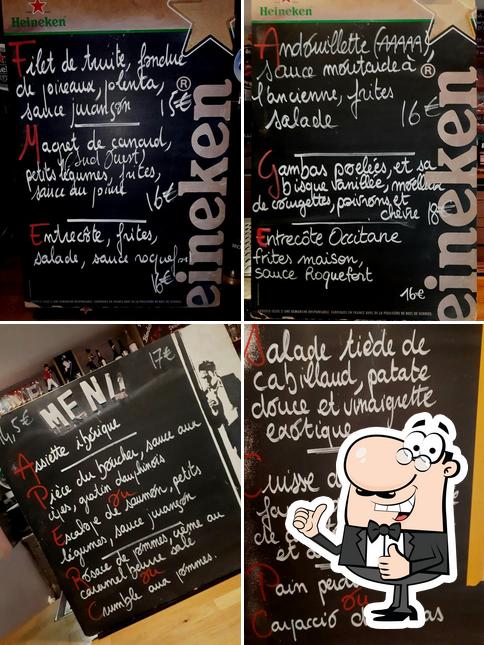 Heineken
Filet de truite, fondue
de poireaux, polenta,
sauce jurançon 15€
Magret de canard,
(Sud Ouest)
petits légumes, frites,
sauce du poivre
16€
Entrecôte, frites,
salade, sauce roquefort
16€
eineken
Heineken
Andouillette (AAAAA),
sauce moutarde à
l'ancienne, frites
salade 16€
Gambas poelées, et sa
bisque vanillée, moelleux
de courgettes, poivrons et
chèvre 18€
Entrecôte Occitane
frites maison,
sauce Roquefort
16€
eineken
14,5€ MENU 17€
Assiette ibérique
Pièce du boucher, sauce aux
cèpes, gratin dauphinois
ou
Escalope de saumon, petits
légumes, sauce jurançon
Rosace de pommes, crème au
caramel beurre salé
ou
Crumble aux pommes.
Salade tiède de
cabillaud, patate
douce et vinaigrette
exotique
Cuisse
de
et
Pain perdu
ou
Carpaccio